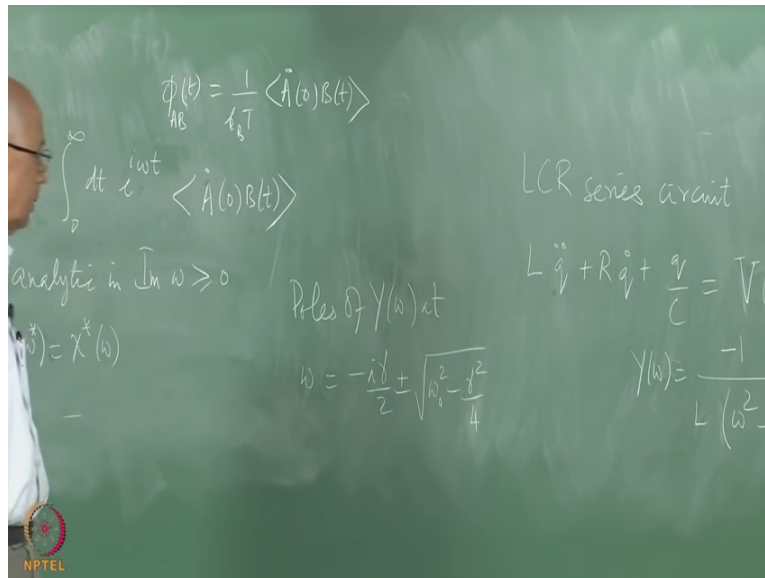 ϕ_AB(t) = 1/(k_B T) ⟨Ȧ(0)B(t)⟩
∫_0^∞ dt e^{iωt} ⟨Ȧ(0)B(t)⟩
analytic in Im ω ≥ 0
*) = χ*(ω)
Poles of Y(ω) at
ω = -iγ/2 ± √(ω_0^2 - γ^2/4)
LCR series circuit
L q̈ + R q̇ + q/C = V(
Y(ω) = -1 / L (ω^2 -
NPTEL